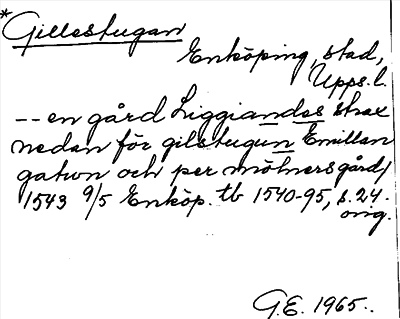 *Gillestugan
Enköping, stad,
Upps. l.
-- en gård Liggiandes strax
nedan för gilstugun Emillan
gatun och per mölnersgård/
1543 9/5 Enköp. tb 1540-95, s. 24.
orig.
G.E. 1965.